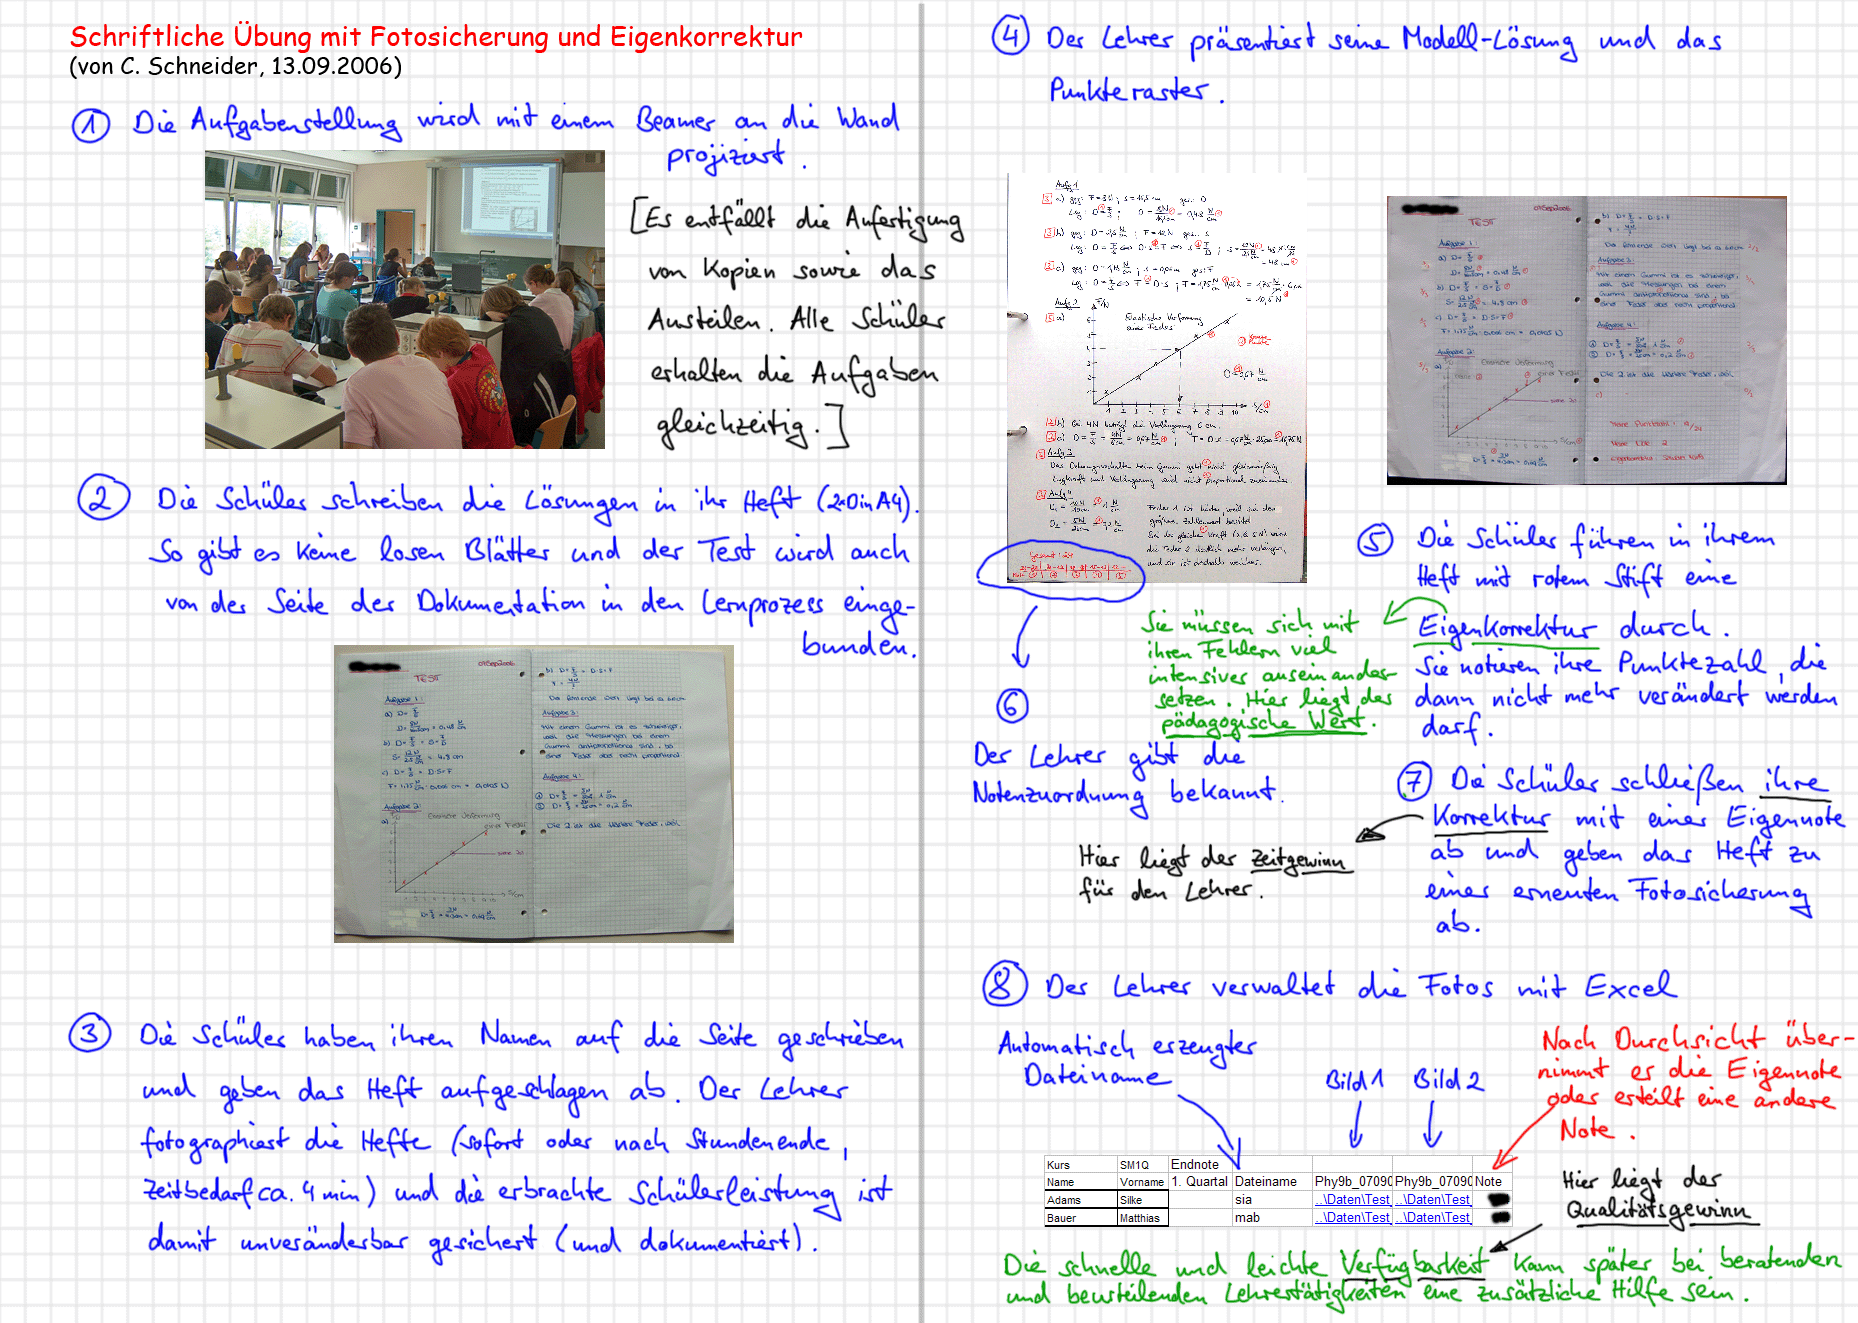 Schriftliche Übung mit Fotosicherung und Eigenkorrektur
(von C. Schneider, 13.09.2006)
① Die Aufgabenstellung wird mit einem Beamer an die Wand
projiziert.
[Es entfällt die Aufertigung
von Kopien sowie das
Austeilen. Alle Schüler
erhalten die Aufgaben
gleichzeitig.]
② Die Schüler schreiben die Lösungen in ihr Heft (2xDinA4).
So gibt es keine losen Blätter und der Test wird auch
von der Seite der Dokumentation in den Lernprozess einge-
bunden.
TEST
Aufgabe 1:
Aufgabe 2:
Aufgabe 3:
Aufgabe 4:
③ Die Schüler haben ihren Namen auf die Seite geschrieben
und geben das Heft aufgeschlagen ab. Der Lehrer
fotographiert die Hefte (sofort oder nach Stundenende,
Zeitbedarf ca. 4 min) und die erbrachte Schülerleistung ist
damit unveränderbar gesichert (und dokumentiert).
④ Der Lehrer präsentiert seine Modell-Lösung und das
Punkteraster.
Aufg. 1
Aufg. 2
Elastische Verformung
einer Feder
Aufg. 3
Aufg. 4
TEST
Aufgabe 1:
Aufgabe 2:
Aufgabe 3:
Aufgabe 4:
⑤ Die Schüler führen in ihrem
Heft mit rotem Stift eine
Eigenkorrektur durch.
Sie notieren ihre Punktezahl, die
dann nicht mehr verändert werden
darf.
Sie müssen sich mit
ihren Fehlern viel
intensiver auseinander-
setzen. Hier liegt der
pädagogische Wert.
⑥
Der Lehrer gibt die
Notenzuordnung bekannt.
⑦ Die Schüler schließen ihre
Korrektur mit einer Eigennote
ab und geben das Heft zu
einer erneuten Fotosicherung
ab.
Hier liegt der Zeitgewinn
für den Lehrer.
⑧ Der Lehrer verwaltet die Fotos mit Excel
Automatisch erzeugter
Dateiname
Bild 1 Bild 2
Nach Durchsicht über-
nimmt er die Eigennote
oder erteilt eine andere
Note.
Kurs SM1Q Endnote
Name Vorname 1. Quartal Dateiname Phy9b_0709 Phy9b_0709 Note
Adams Silke sia ..\Daten\Test ..\Daten\Test
Bauer Matthias mab ..\Daten\Test ..\Daten\Test
Hier liegt der
Qualitätsgewinn
Die schnelle und leichte Verfügbarkeit kann später bei beratenden
und beurteilenden Lehrertätigkeiten eine zusätzliche Hilfe sein.